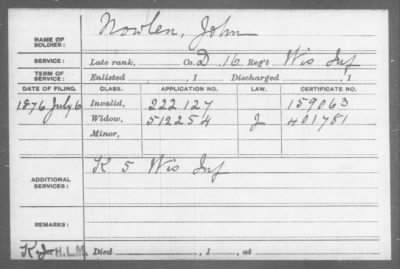 NAME OF SOLDIER: Nowlen, John
SERVICE: Late rank, Co. D, 16 Reg't Wis Inf
TERM OF SERVICE: Enlisted , 1 Discharged , 1
DATE OF FILING. CLASS. APPLICATION NO. LAW. CERTIFICATE NO.
1876 July 6 Invalid, 222127 159063
Widow, 512254 J 401781
Minor,
ADDITIONAL SERVICES: K 5 Wis Inf
REMARKS:
H.L.M. Died , 1 , at